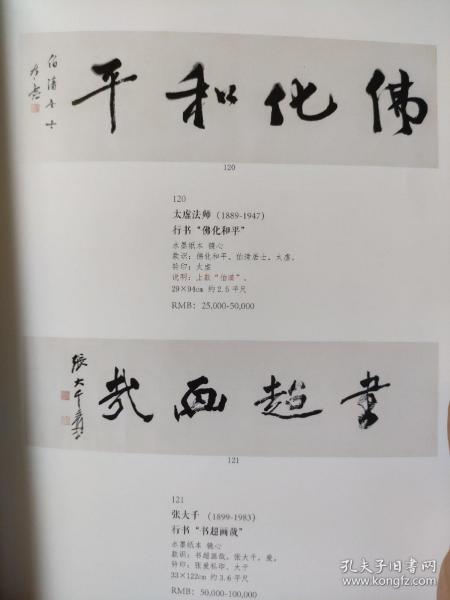 佛化和平
伯清居士
太虚
120
120
太虚法师（1889-1947）
行书“佛化和平”
水墨纸本 镜心
款识：佛化和平。伯清居士。太虚。
钤印：太虚
说明：上款“伯清”。
29×94cm 约2.5平尺
RMB：25,000-50,000
書超画哉
張大千爰
121
121
张大千（1899-1983）
行书“书超画哉”
水墨纸本 镜心
款识：书超画哉。张大千，爰。
钤印：张爰私印、大千
33×122cm 约3.6平尺
RMB：50,000-100,000
孔夫子旧书网